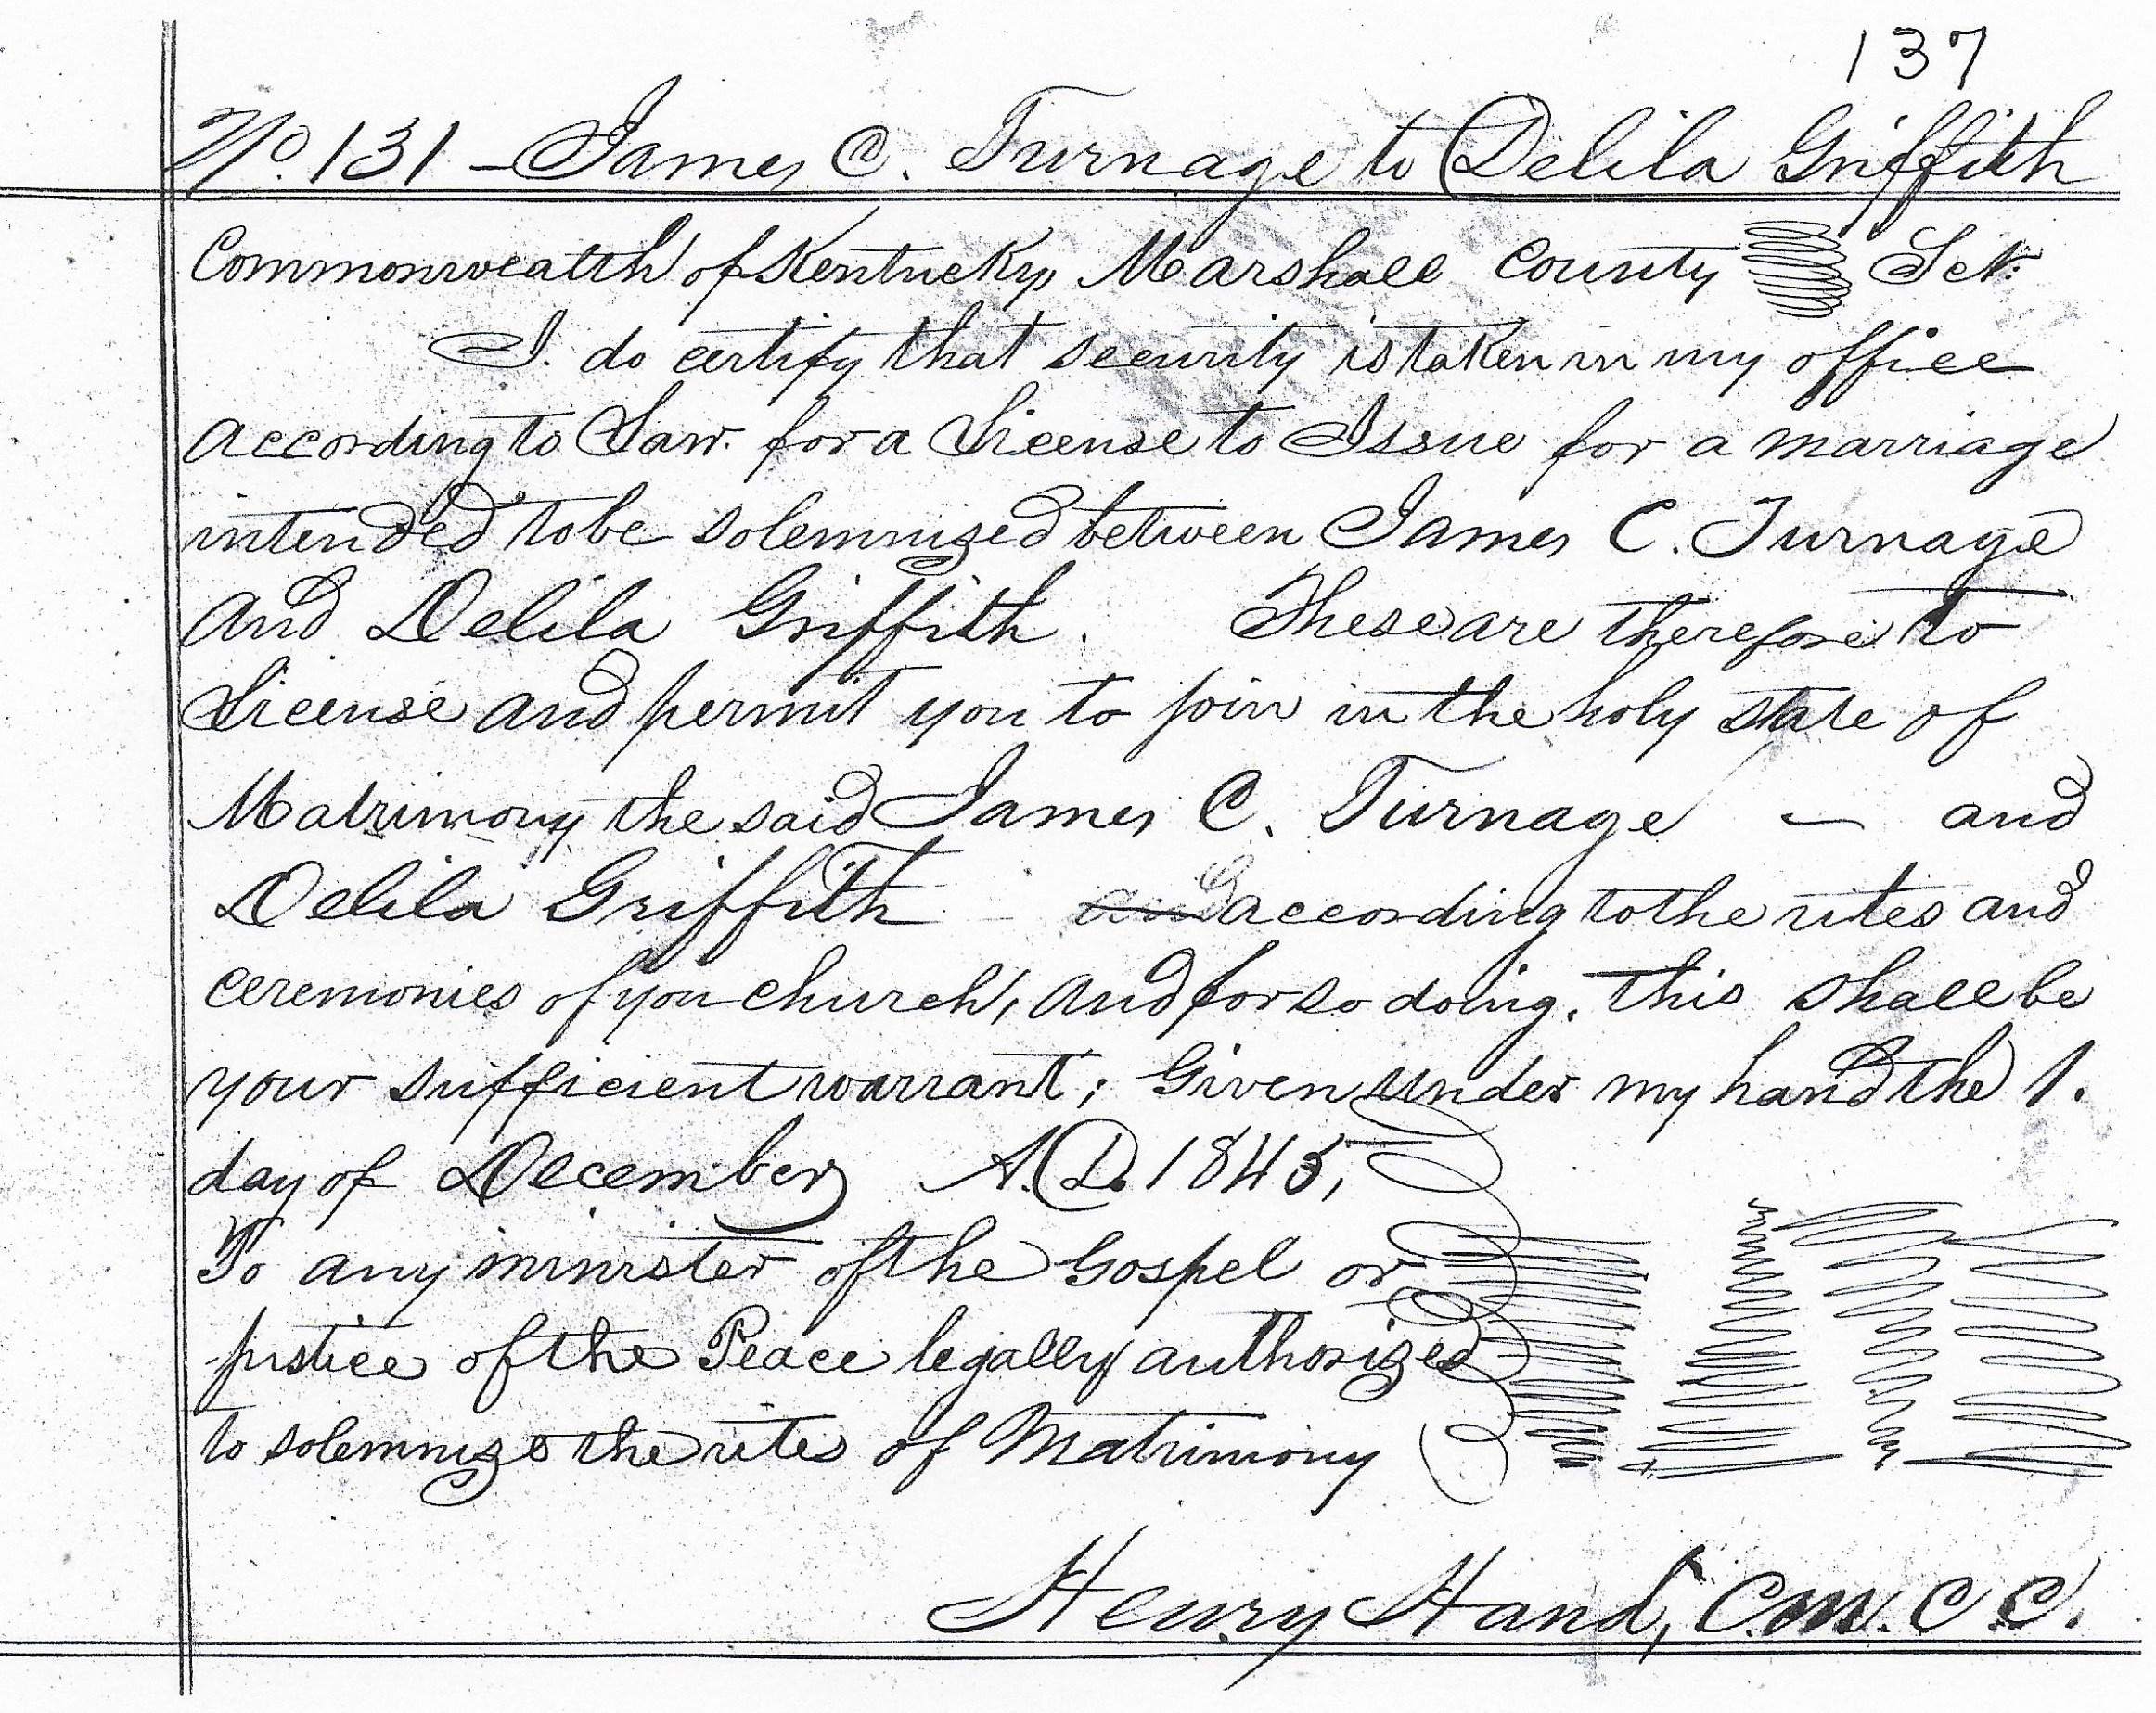 137
No. 131 - James C. Turnage to Delila Griffith
Commonwealth of Kentucky, Marshall County Sct.
I. do certify that security is taken in my office
according to Law. for a License to Issue for a marriage
intended to be solemnized between James C. Turnage
and Delila Griffith. These are therefore to
License and permit you to join in the holy state of
Matrimony the said James C. Turnage - and
Delila Griffith and according to the rites and
ceremonies of you church, and for so doing, this shall be
your sufficient warrant; Given under my hand the 1.
day of December A.D. 1845,
To any minister of the Gospel or
justice of the Peace legally authorized
to solemnize the rites of Matrimony
Henry Hand, C.M.C.C.